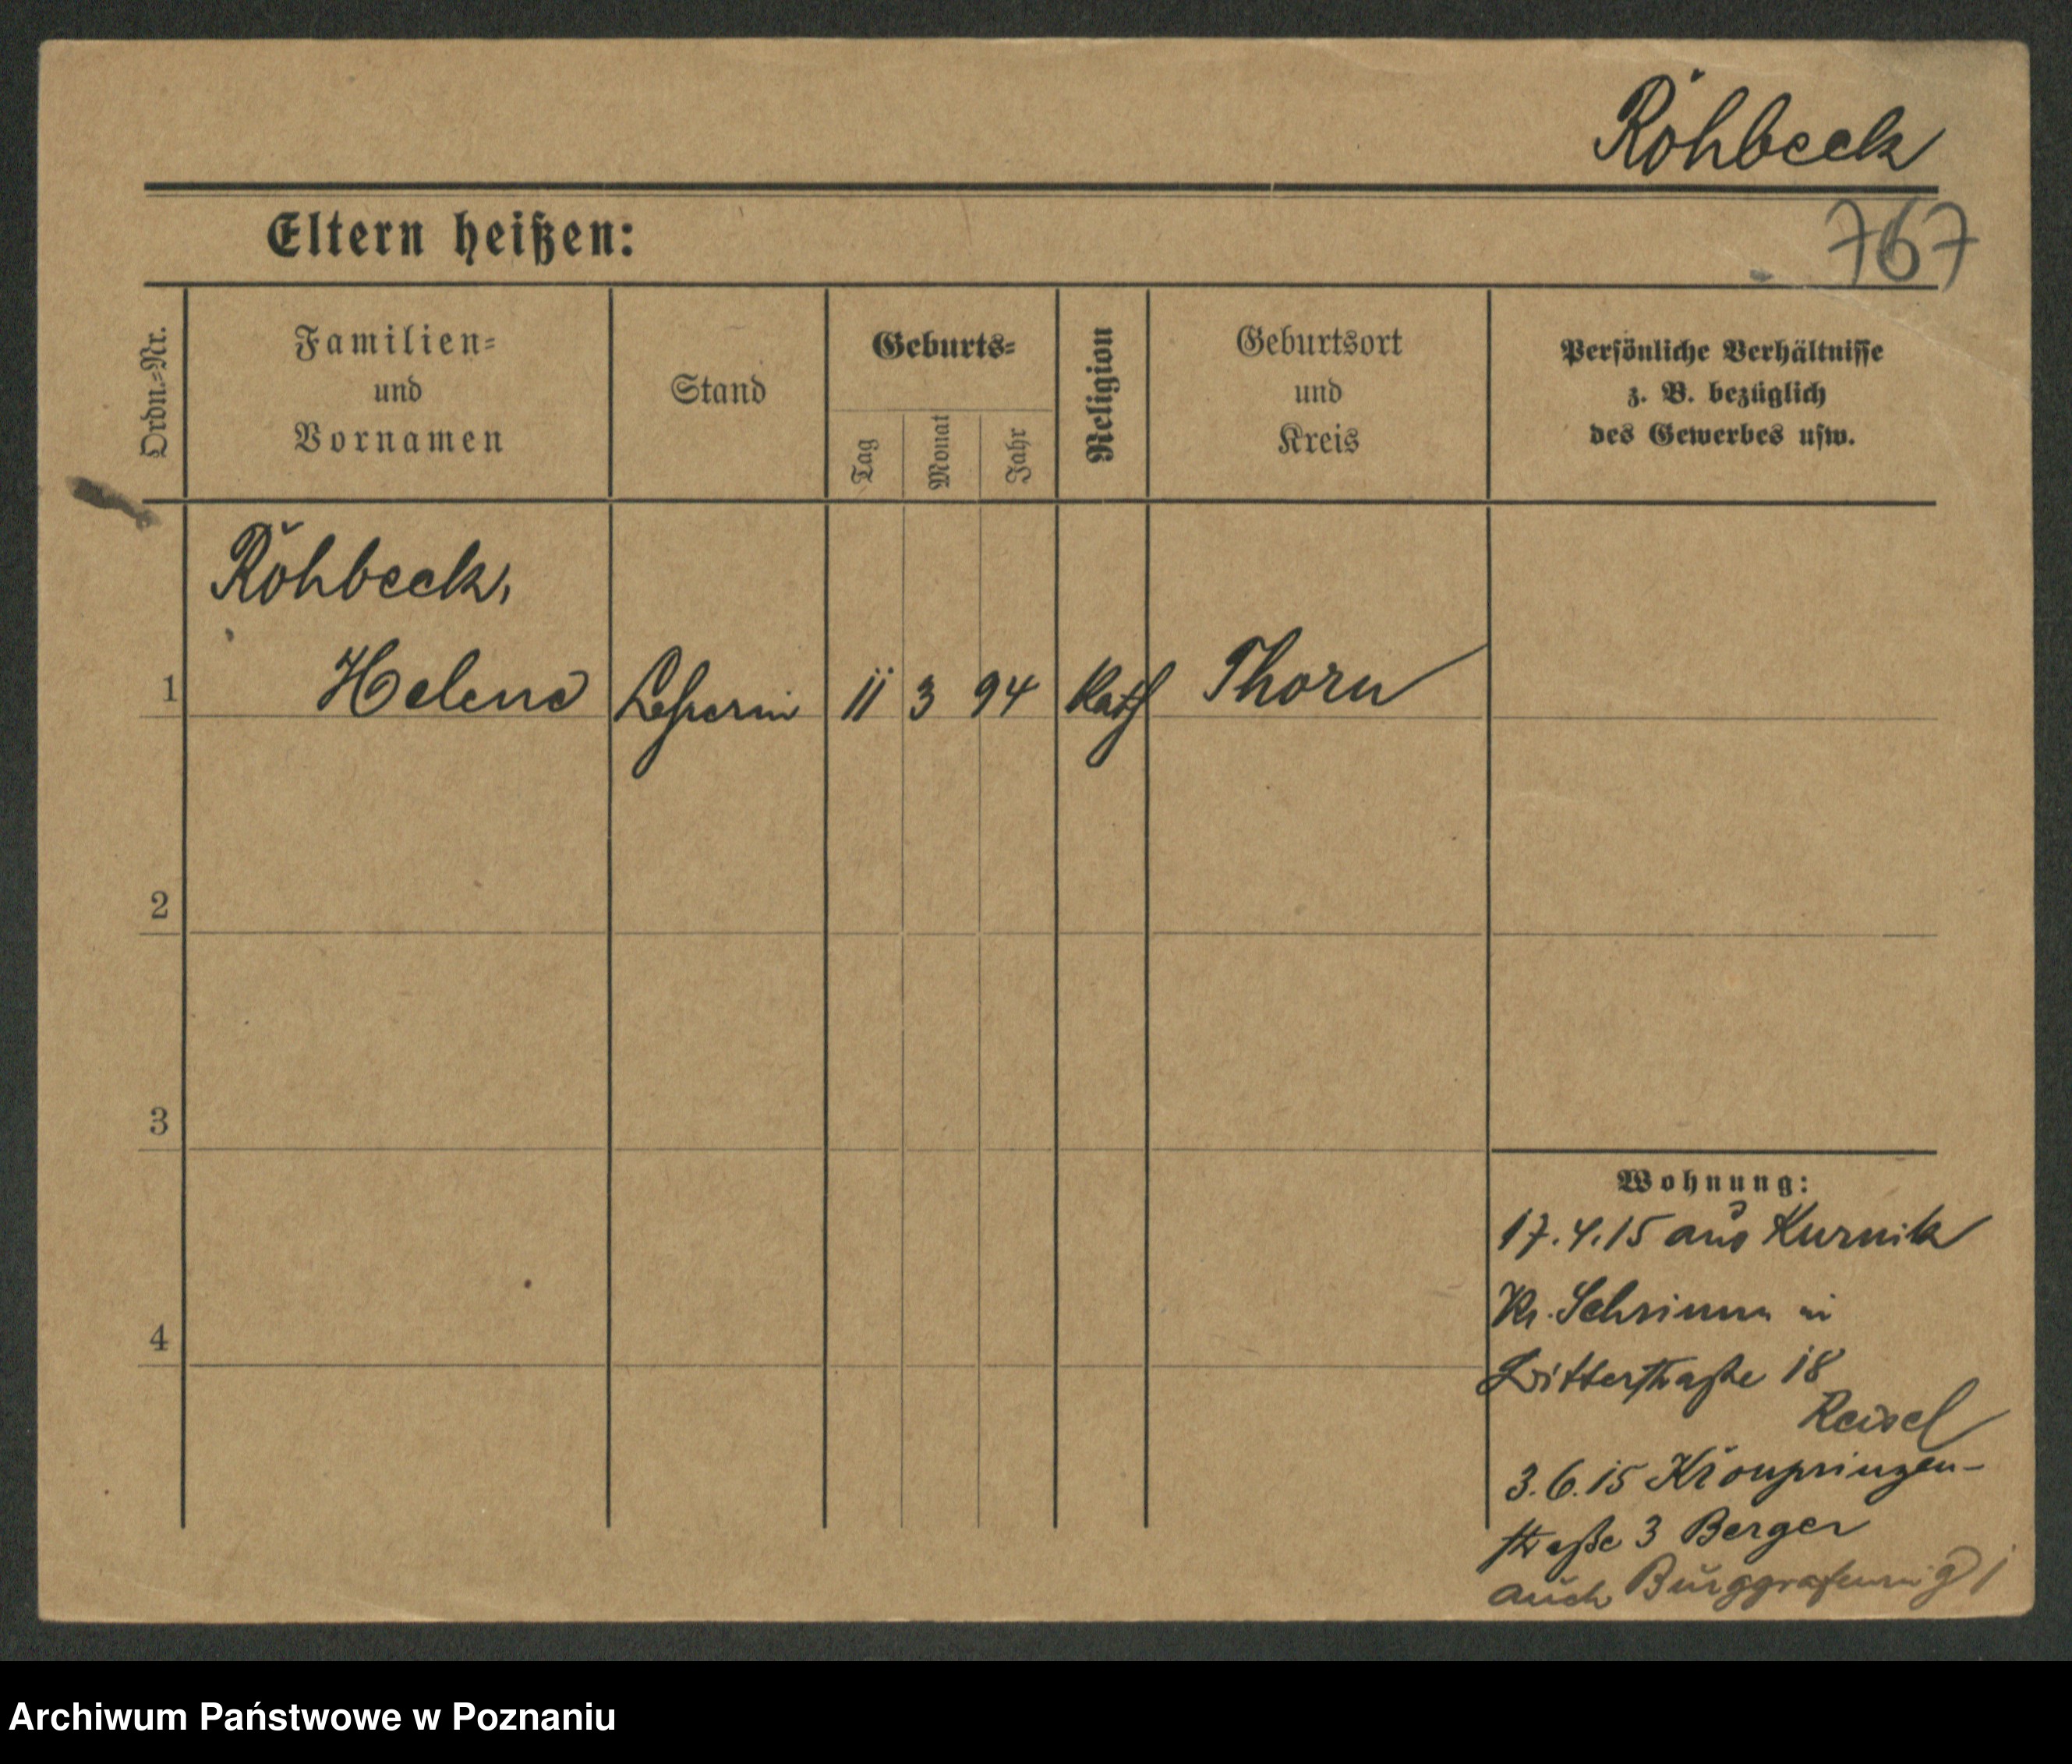 Röhbeck
Eltern heißen:
767
Ordn.=Nr.
Familien=
und
Vornamen
Stand
Geburts=
Tag
Monat
Jahr
Religion
Geburtsort
und
Kreis
Persönliche Verhältnisse
z. B. bezüglich
des Gewerbes usw.
Röhbeck,
1 Helene Lehrerin 11 3 94 Kath Thorn
2
3
4
Wohnung:
17.4.15 aus Kurnik
Kr. Schrimm in
Ritterstraße 18
Reisel
3.6.15 Kronprinzen-
straße 3 Berger
auch